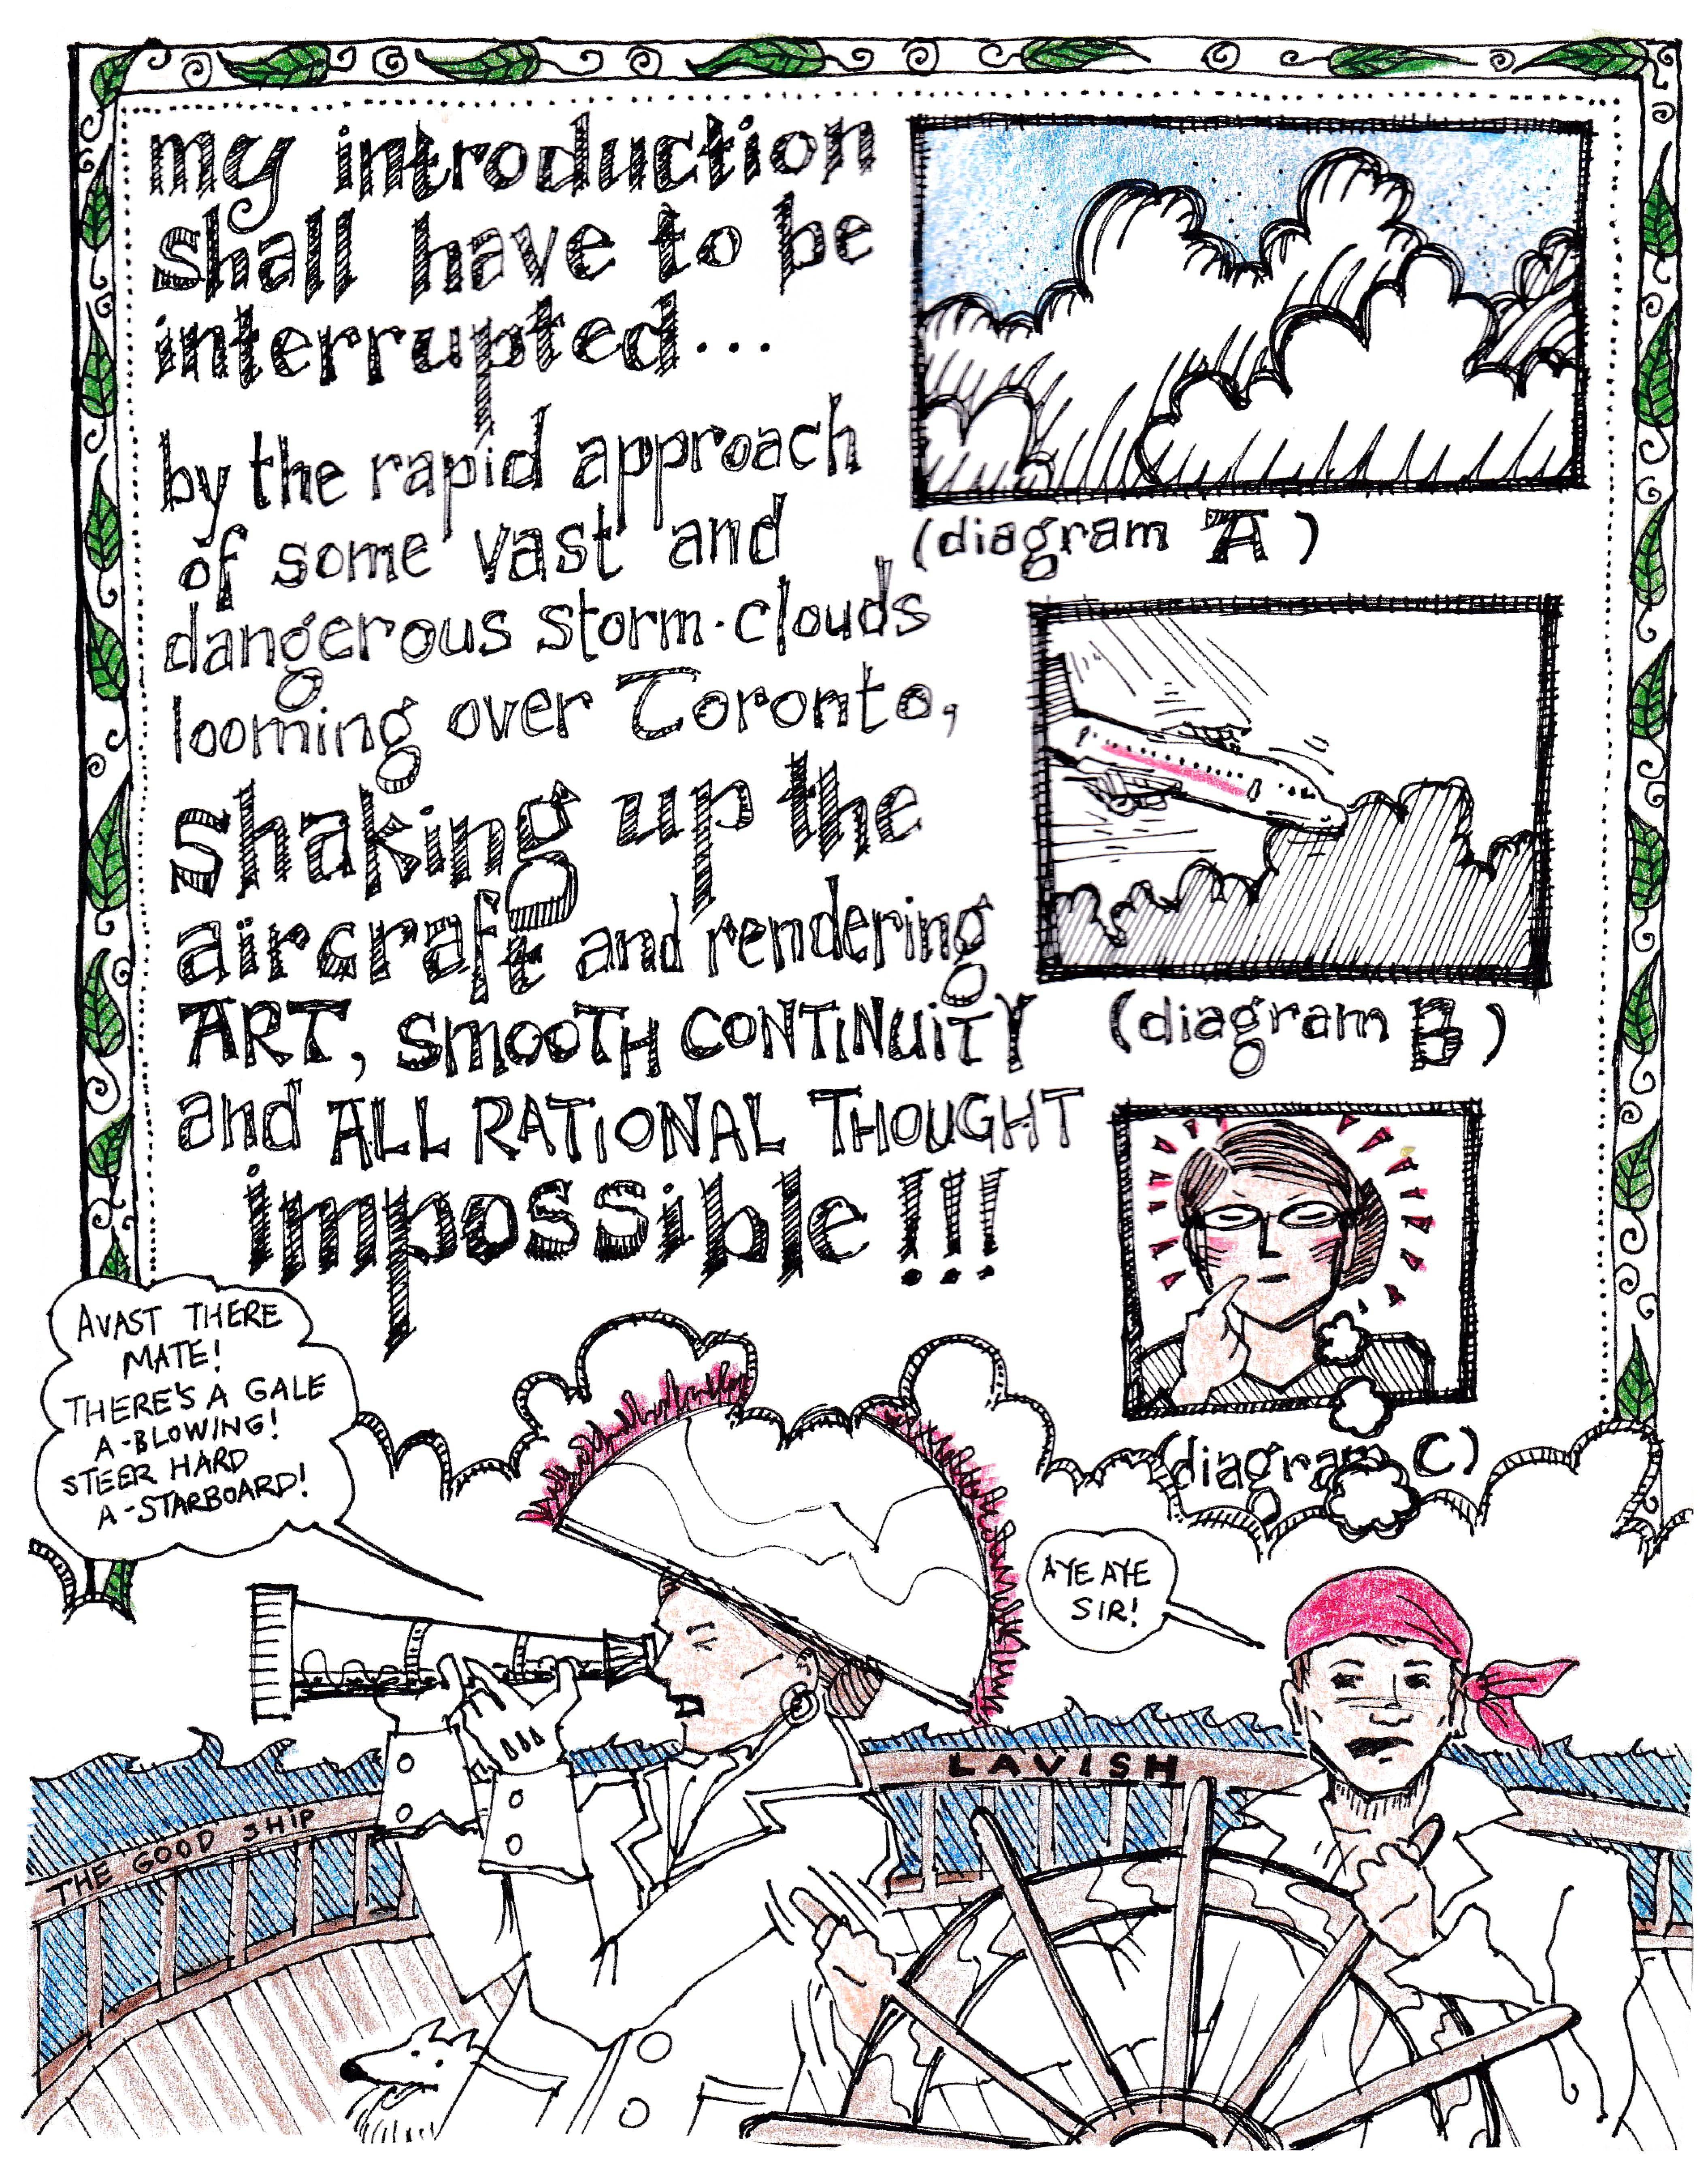 my introduction
shall have to be
interrupted...
by the rapid approach
of some vast and
dangerous storm-clouds
looming over Toronto,
shaking up the
aircraft and rendering
ART, SMOOTH CONTINUITY
and ALL RATIONAL THOUGHT
impossible!!!
(diagram A)
(diagram B)
(diagram C)
AVAST THERE
MATE!
THERE'S A GALE
A-BLOWING!
STEER HARD
A-STARBOARD!
AYE AYE
SIR!
THE GOOD SHIP
LAVISH